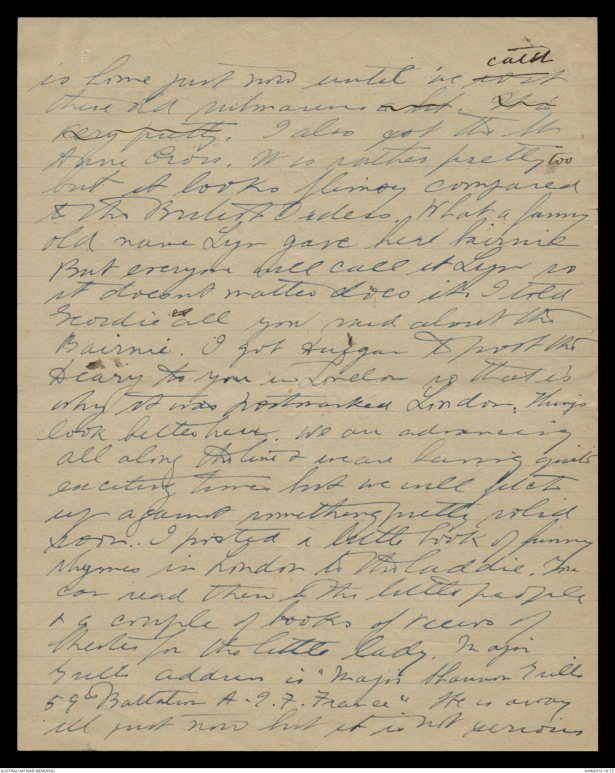 catch
is home just now until we cost
these old submarines a bit. It is
very pretty. I also got the St
Anne Cross. It is rather pretty too
but it looks flimsy compared
to the British Orders. What a funny
old name Lyn gave her bairnie
But everyone will call it Lyn so
it doesnt matter does it. I told
Geordie all you said about the
Bairnie. I got Huggan to post the
Deary to you in London so that is
why it was postmarked London. Things
look better here. We are advancing
all along the line & we are having quite
exciting times but we will fetch
up against something pretty solid
soon. I posted a little book of funny
rhymes in London to the laddie. You
can read them to the little people
& a couple of books of views of
Chester for the little lady. Major
address is "Major
59th Battalion A.I.F. France" He is away
ill just now but it is not serious
AUSTRALIAN WAR MEMORIAL